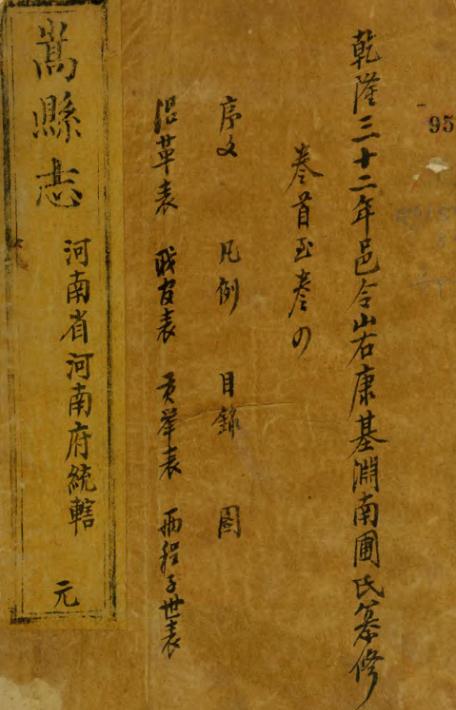 95
乾隆三十二年邑令山右康基淵南圃氏纂修
卷首至卷四
序文 凡例 目錄 圖
沿革表 職官表 貢舉表 兩程子世表
嵩縣志
河南省河南府統轄
元